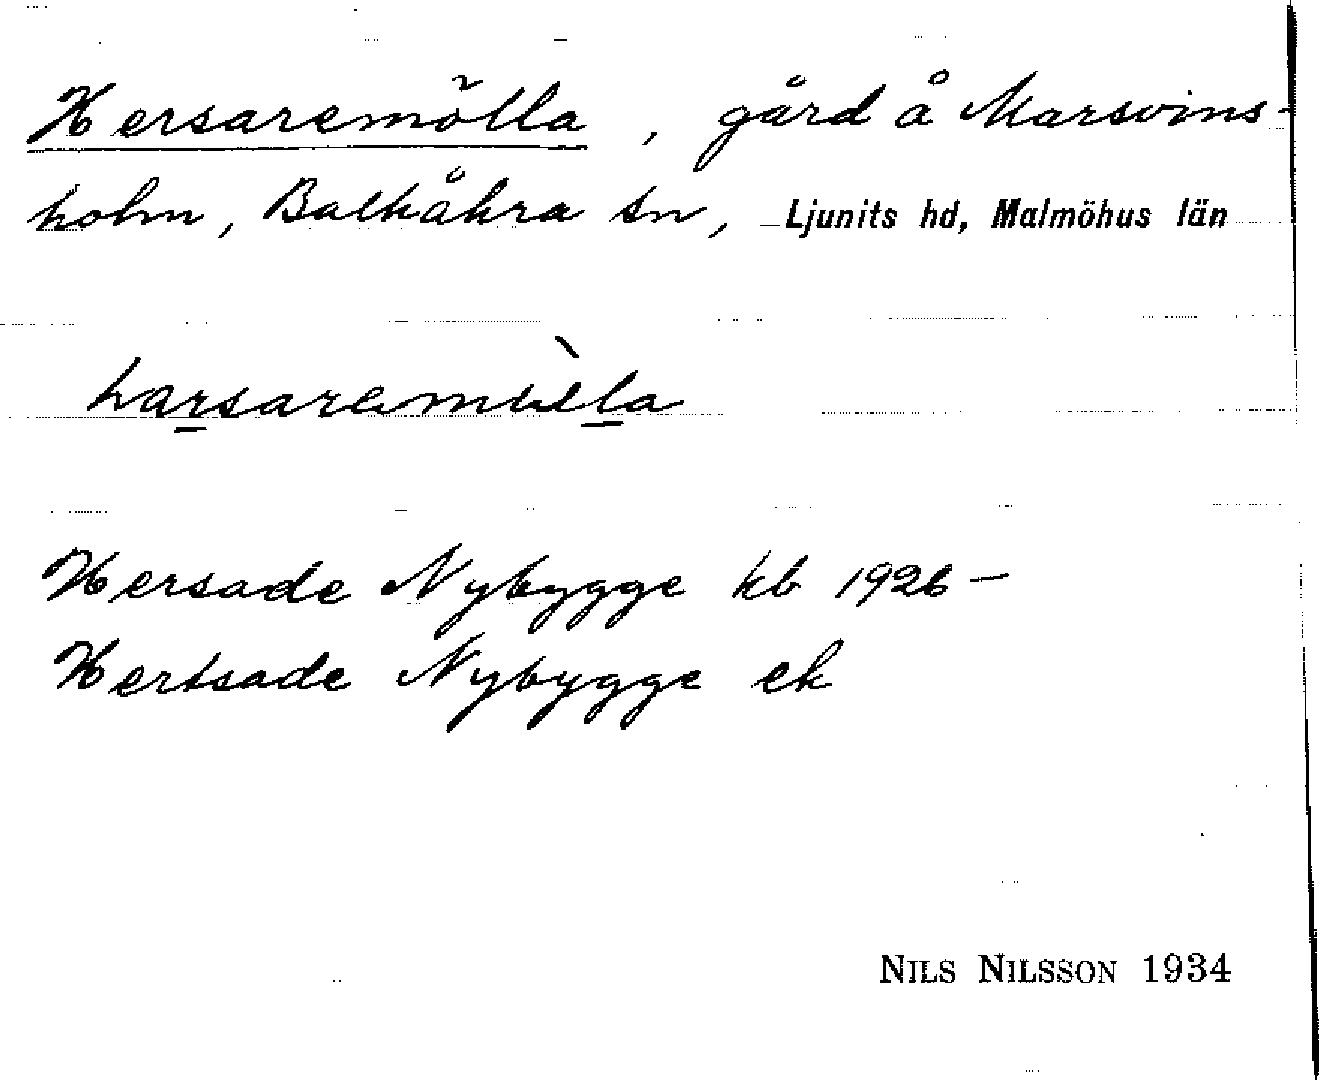 Hersaremölla, gård å Marsvins-
holm, Balkåkra sn, Ljunits hd, Malmöhus län
Hersade Nybygge kb 1926–
Hertsade Nybygge ek
NILS NILSSON 1934